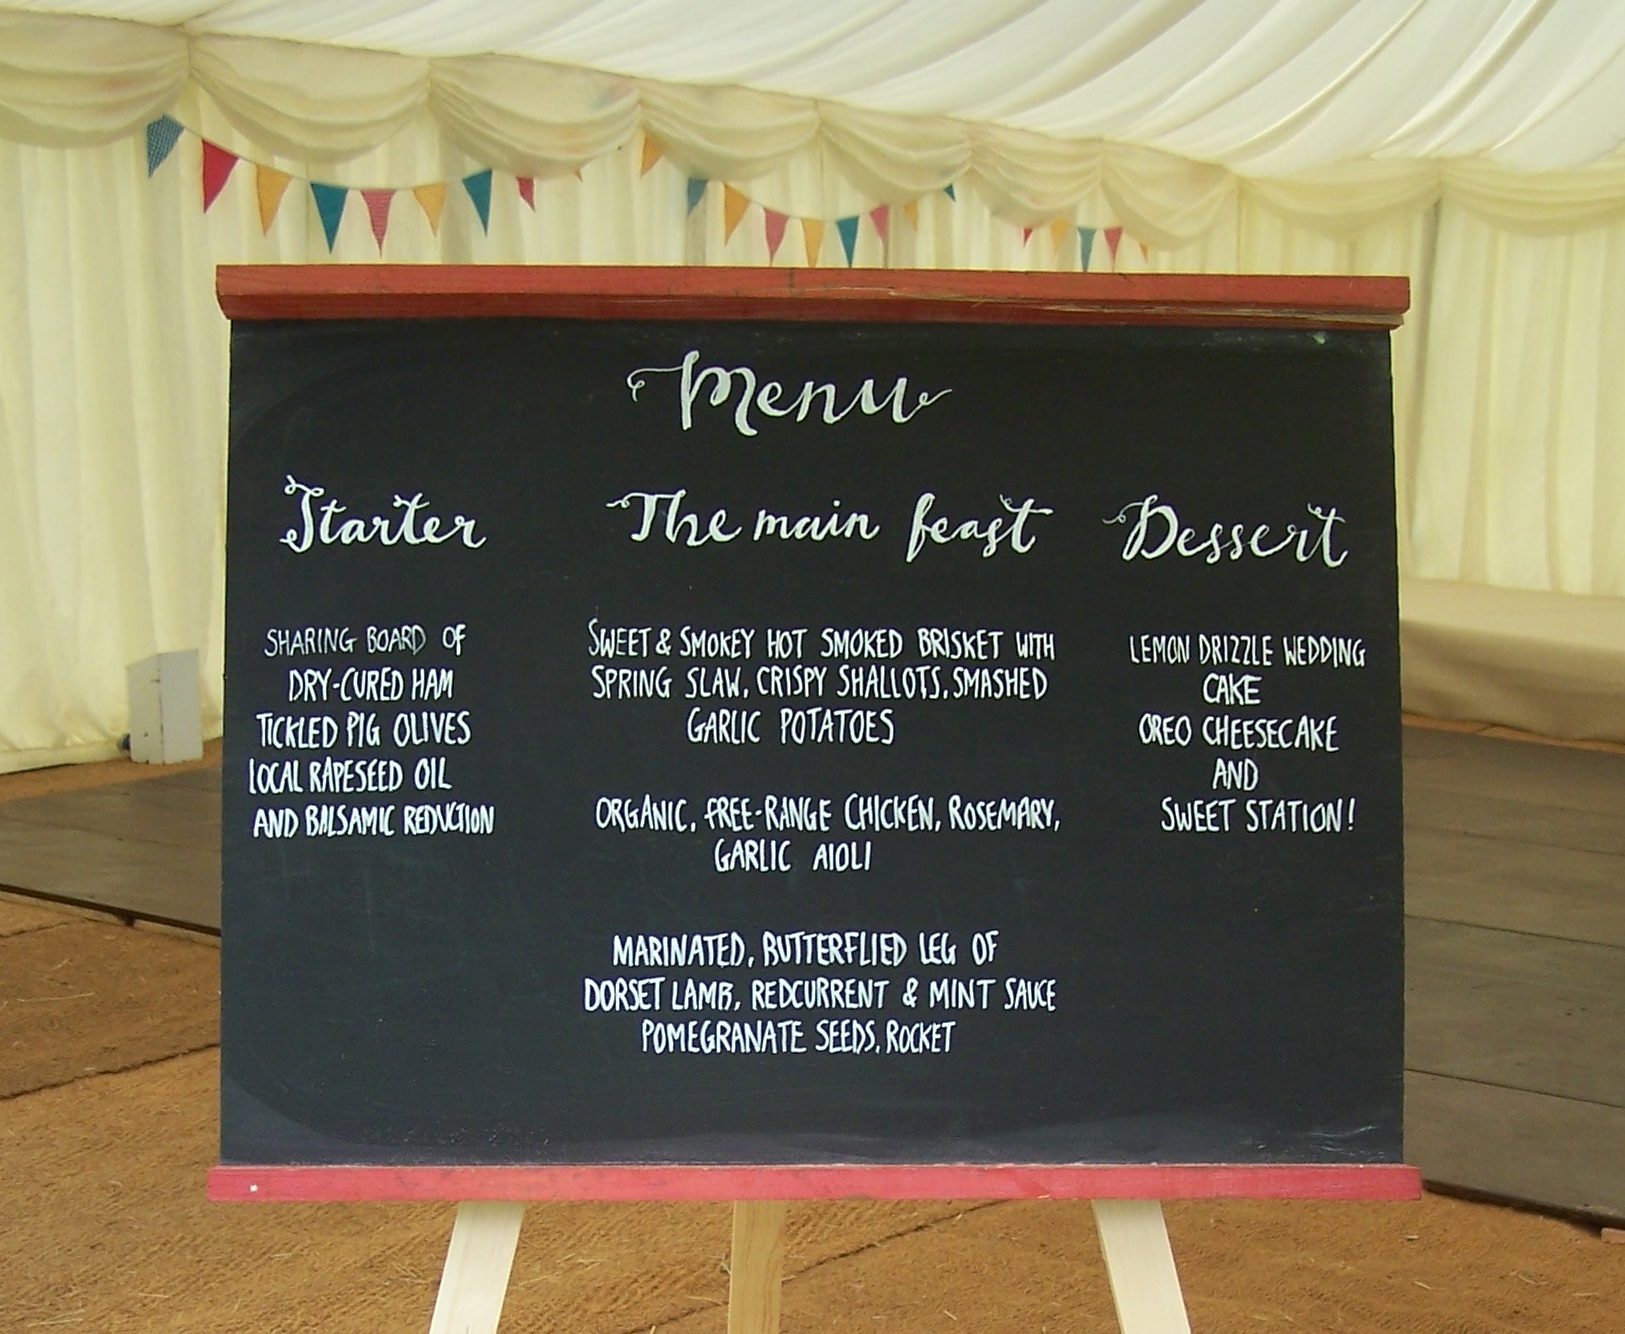 Menu
Starter
SHARING BOARD OF
DRY-CURED HAM
TICKLED PIG OLIVES
LOCAL RAPESEED OIL
AND BALSAMIC REDUCTION
The main feast
SWEET & SMOKEY HOT SMOKED BRISKET WITH
SPRING SLAW, CRISPY SHALLOTS, SMASHED
GARLIC POTATOES
ORGANIC, FREE-RANGE CHICKEN, ROSEMARY,
GARLIC AIOLI
MARINATED, BUTTERFLIED LEG OF
DORSET LAMB, REDCURRENT & MINT SAUCE
POMEGRANATE SEEDS, ROCKET
Dessert
LEMON DRIZZLE WEDDING
CAKE
OREO CHEESECAKE
AND
SWEET STATION!